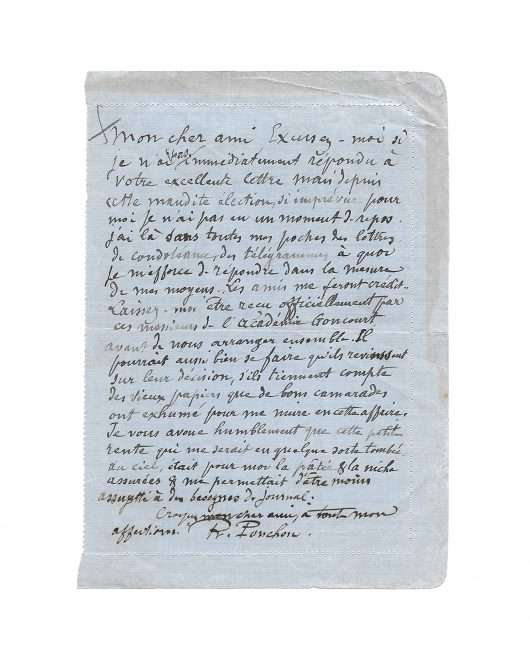 Mon cher ami Excusez-moi si
je n'ai pas immédiatement répondu à
votre excellente lettre mais depuis
cette maudite élection, si imprévue pour
moi je n'ai pas eu un moment de repos.
j'ai là dans toutes mes poches des lettres
de condoléance, des télégrammes à quoi
je m'efforce de répondre dans la mesure
de mes moyens. Les amis me feront crédit.
Laissez-moi être reçu officiellement par
ces messieurs de l'académie Goncourt
avant de nous arranger ensemble. Il
pourrait aussi bien se faire qu'ils revinssent
sur leur décision, s'ils tiennent compte
des vieux papiers que de bons camarades
ont exhumé pour me nuire en cette affaire.
Je vous avoue humblement que cette petite
rente qui me serait en quelque sorte tombée
du ciel, était pour moi la pâtée & la niche
assurées & me permettait d'être moins
assujetti à des besognes de journal.
Croyez mon cher ami, à toute mon
affection. R. Ponchon.